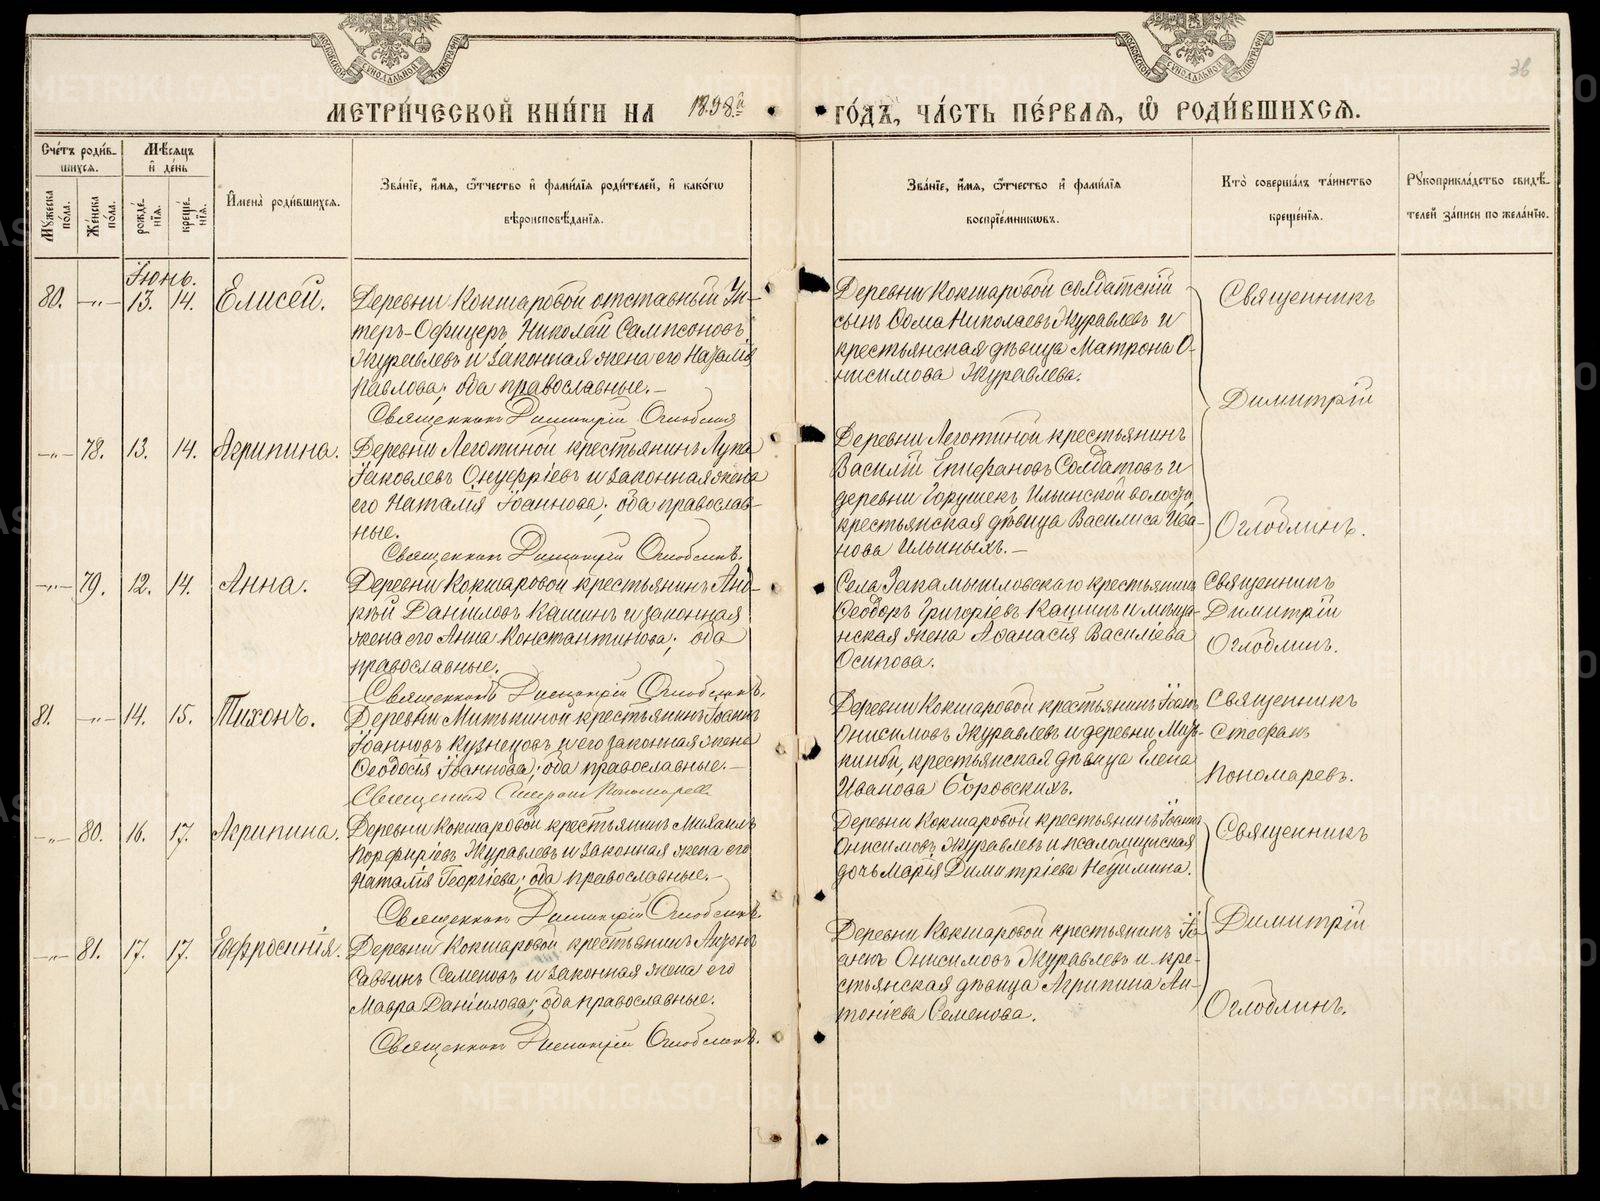 МЕТРИ́ЧЕСКОЙ КНИ́ГИ НА 1898й
ГО́ДЪ, ЧА́СТЬ ПЕ́РВАЯ, Ѽ РОДИ́ВШИХСЯ.
36
Счётъ роди́в-
шихся.
Мѣсяцъ
и де́нь
Мужеска по́ла.
Же́нска по́ла.
рожде́нія.
креще́нія.
Имена̀ роди́вшихся.
Зва́ніе, и́мя, ѻ́тчество и фами́лія роди́телей, и како́гѡ
вѣроисповѣ́данія.
Зва́ніе, и́мя, ѻ́тчество и фами́лія
воспріе́мниковъ.
Кто̀ соверша́лъ та́инство
креще́нія.
Рꙋкоприкла́дство свидѣ́-
телей за́писи по жела́нію.
Іюнь.
80. -„- 13. 14. Елисей.
Деревни Кокшаровой отставный Ун-
теръ-Офицеръ Николай Сампсоновъ
Журавлевъ и законная жена его Наталія
Павлова; оба православные.-
Священникъ Димитрій Оглоблинъ
Деревни Кокшаровой солдатскій
сынъ Ѳома Николаевъ Журавлевъ и
крестьянская дѣвица Матрона О-
нисимова Журавлева.
Священникъ
Димитрій
Оглоблинъ.
-„- 78. 13. 14. Агрипина.
Деревни Леготиной крестьянинъ Лука
Іаковлевъ Онуфріевъ и законная жена
его Наталія Іоаннова; оба православ-
ные.
Священникъ Димитрій Оглоблинъ.
Деревни Леготиной крестьянинъ
Василій Епифановъ Солдатовъ и
деревни Горушекъ, Ильинской волости,
крестьянская дѣвица Василиса Ива-
нова Ильиныхъ.-
-„- 79. 12. 14. Анна.
Деревни Кокшаровой крестьянинъ Анд-
рѣй Даніиловъ Кашинъ и законная
жена его Анна Константинова; оба
православные.
Священникъ Димитрій Оглоблинъ.
Села Закамышловскаго крестьянинъ
Ѳеодоръ Григоріевъ Кашинъ и мѣща-
нская жена Аѳанасія Василіева
Осипова.
Священникъ
Димитрій
Оглоблинъ.
81. -„- 14. 15. Тихонъ.
Деревни Митькиной крестьянинъ Іоаннъ
Іоанновъ Кузнецовъ и его законная жена
Ѳеодосія Іоаннова; оба православные.-
Священникъ Стефанъ Пономаревъ
Деревни Кокшаровой крестьянинъ Іоаннъ
Онисимовъ Журавлевъ и деревни
крестьянская дѣвица Елена
Иванова Боровскихъ.
Священникъ
Стефанъ
Пономаревъ.
-„- 80. 16. 17. Агрипина.
Деревни Кокшаровой крестьянинъ Михаилъ
Порфиріевъ Журавлевъ и законная жена его
Наталія Георгіева; оба православные.-
Священникъ Димитрій Оглоблинъ.
Деревни Кокшаровой крестьянинъ Іоаннъ
Онисимовъ Журавлевъ и псаломщиская
дочь Марія Димитріева
Священникъ
Димитрій
Оглоблинъ.
-„- 81. 17. 17. Евфросинія.
Деревни Кокшаровой крестьянинъ
Саввинъ Семеновъ и законная жена его
Мавра Даніилова; оба православные.
Священникъ Димитрій Оглоблинъ.
Деревни Кокшаровой крестьянинъ Іо-
аннъ Онисимовъ Журавлевъ и кре-
стьянская дѣвица Агрипина Ан-
тоніева Семенова.
METRIKI.GASO-URAL.RU